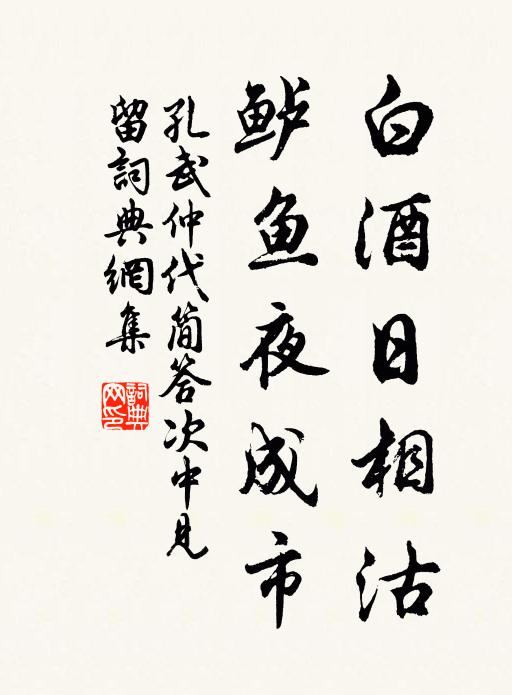 白酒日相沽
鲈鱼夜成市
孔武仲代简答次中見
留詞典網集
詞典
网印